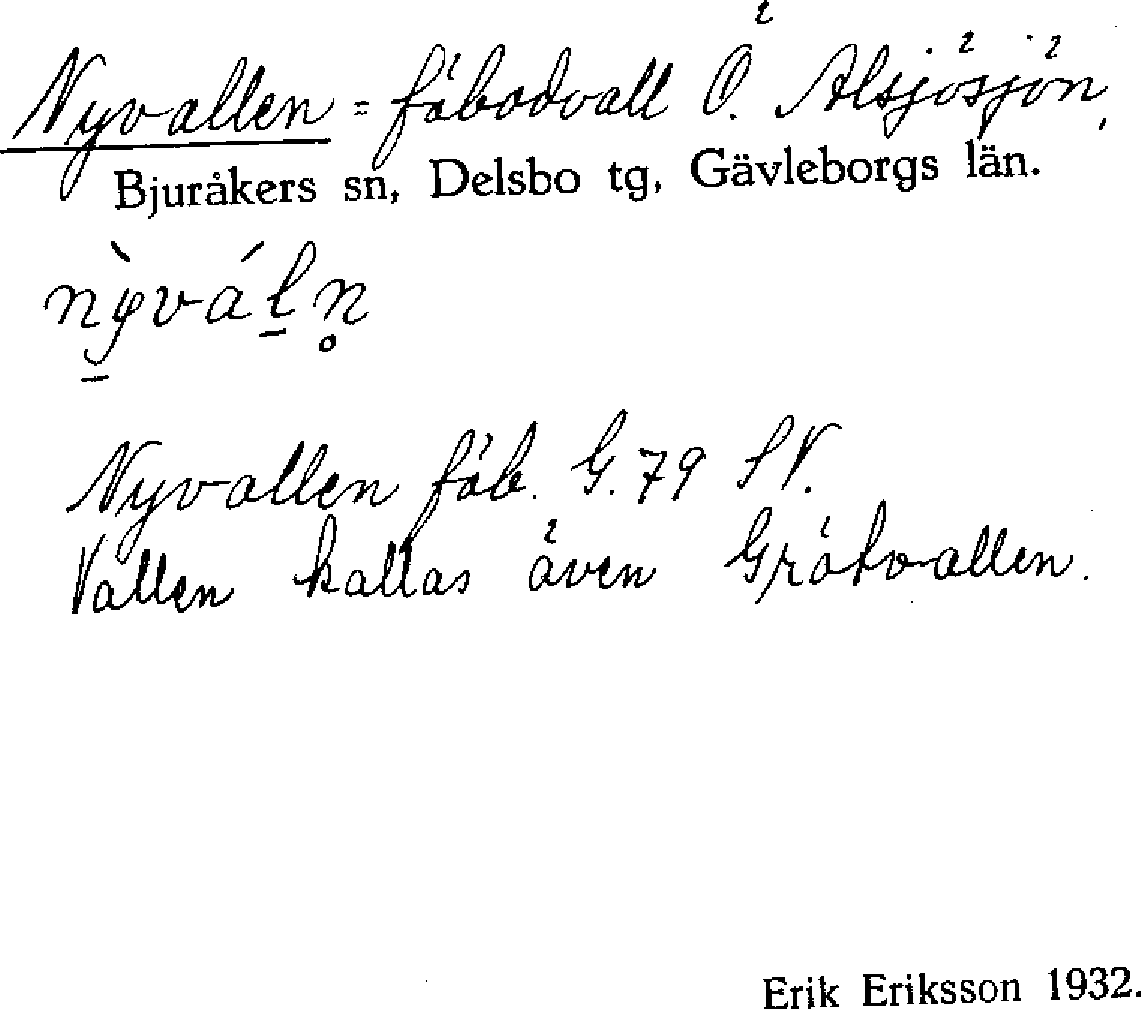 Nyvallen = fäbodvall Ö. Alsjösjön,
Bjuråkers sn, Delsbo tg, Gävleborgs län.
nỳváḻn̥
Nyvallen fäb. G.79 SV.
Vallen kallas även Gråtvallen.
Erik Eriksson 1932.